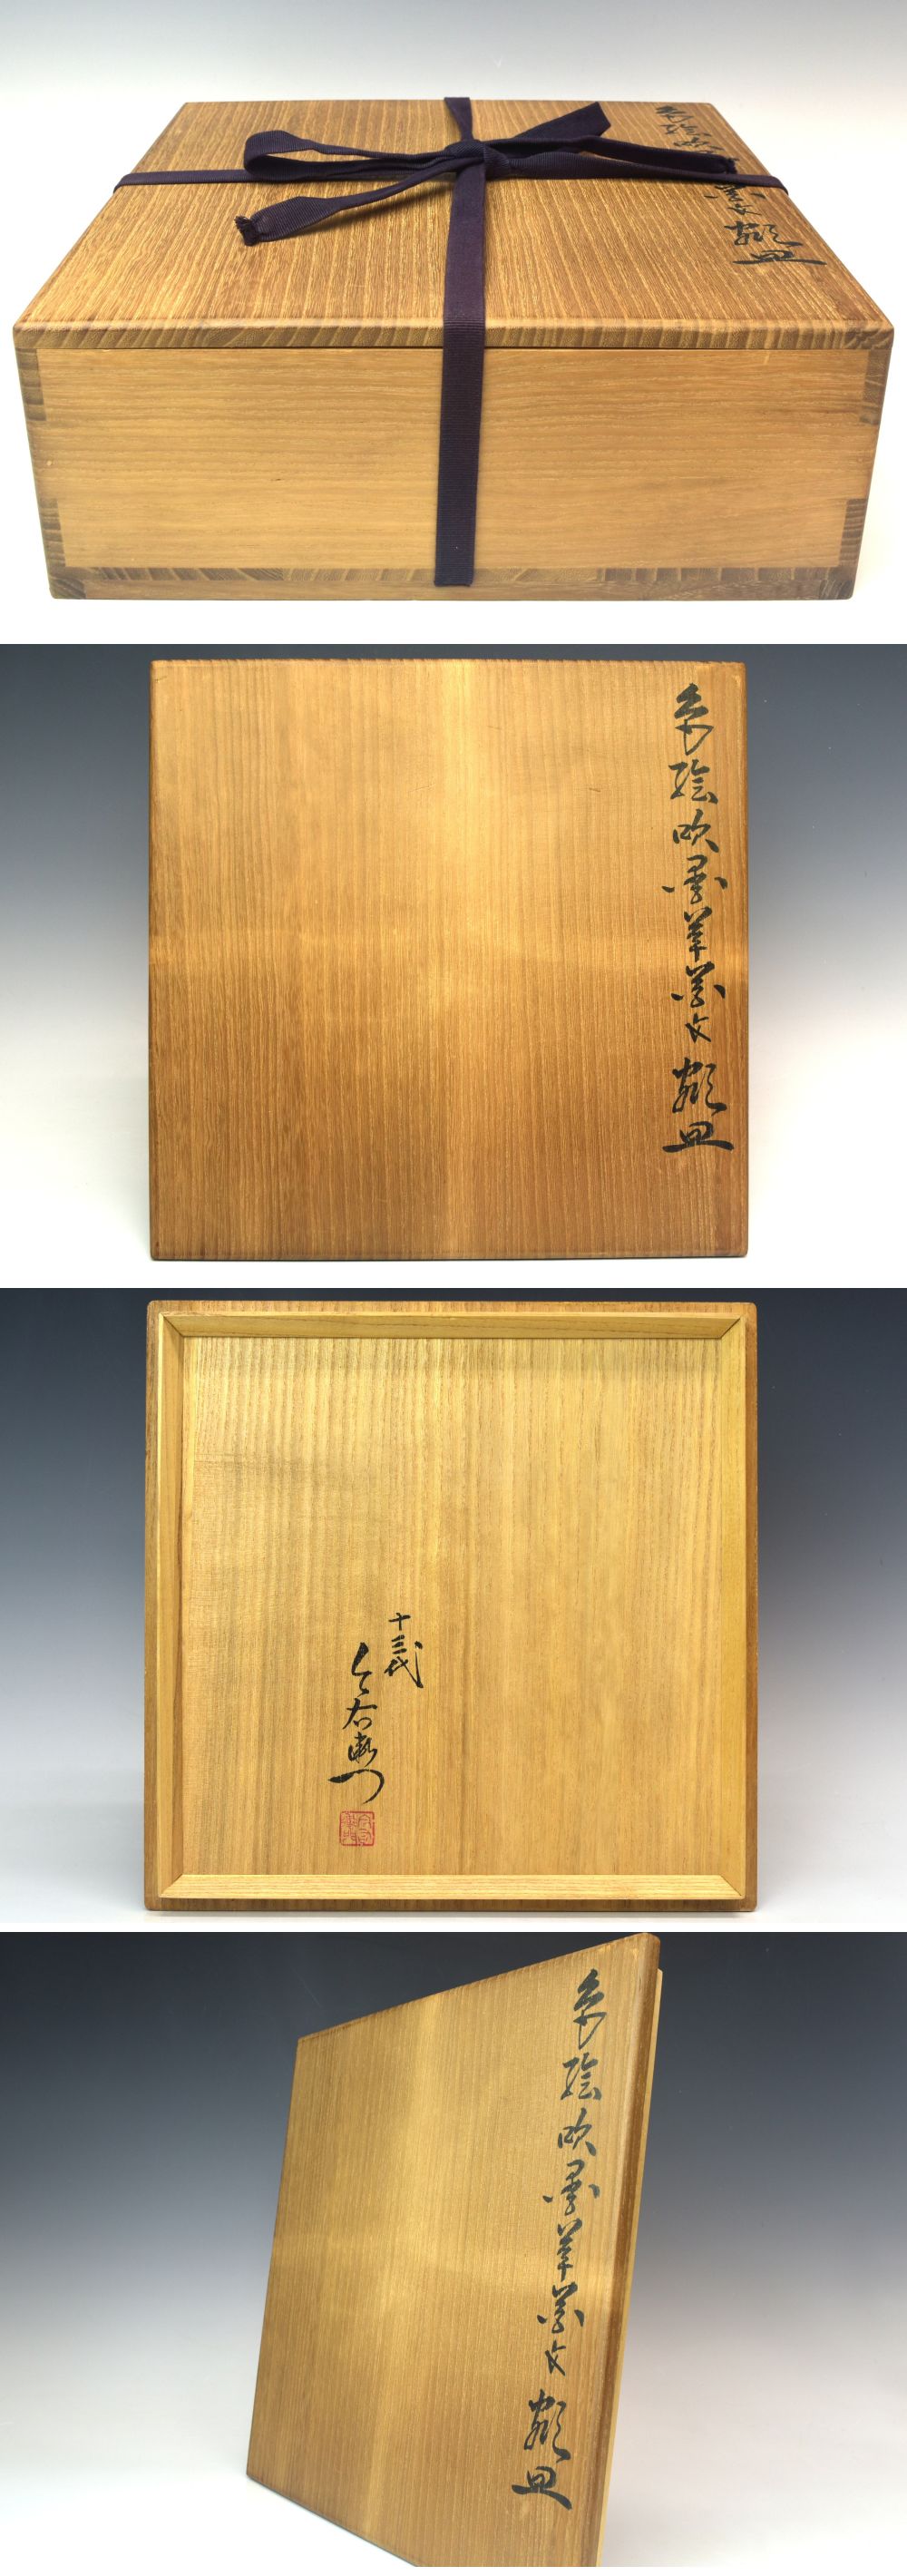 色絵吹墨草葉文額皿
色絵吹墨草葉文額皿
十三代
今右衛門
色絵吹墨草葉文額皿